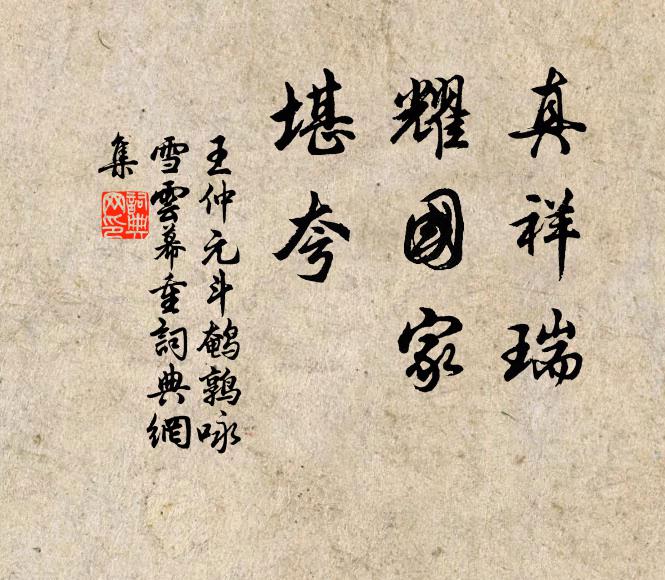 真祥瑞
耀國家
堪夸
王仲元斗鹌鹑咏
雪雲幕重詞典網
集
詞典網印